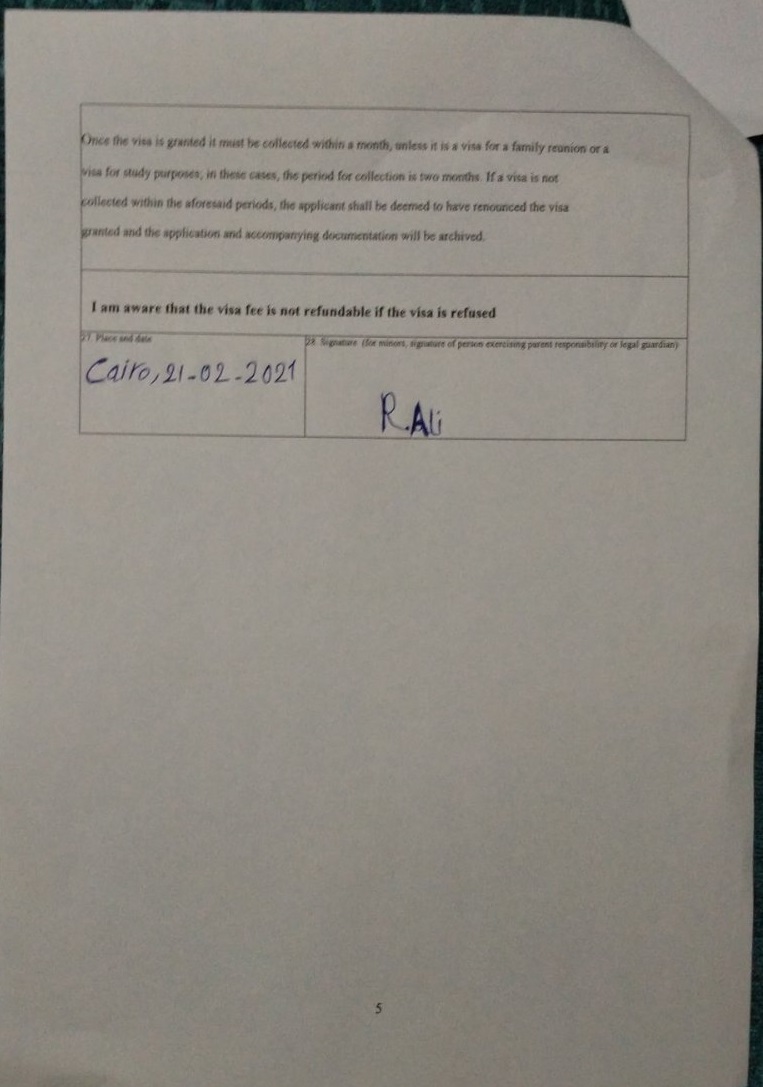 Once the visa is granted it must be collected within a month, unless it is a visa for a family reunion or a
visa for study purposes; in these cases, the period for collection is two months. If a visa is not
collected within the aforesaid periods, the applicant shall be deemed to have renounced the visa
granted and the application and accompanying documentation will be archived.
I am aware that the visa fee is not refundable if the visa is refused
27. Place and date
28. Signature (for minors, signature of person exercising parent responsibility or legal guardian)
Cairo, 21-02-2021
R.Ali
5